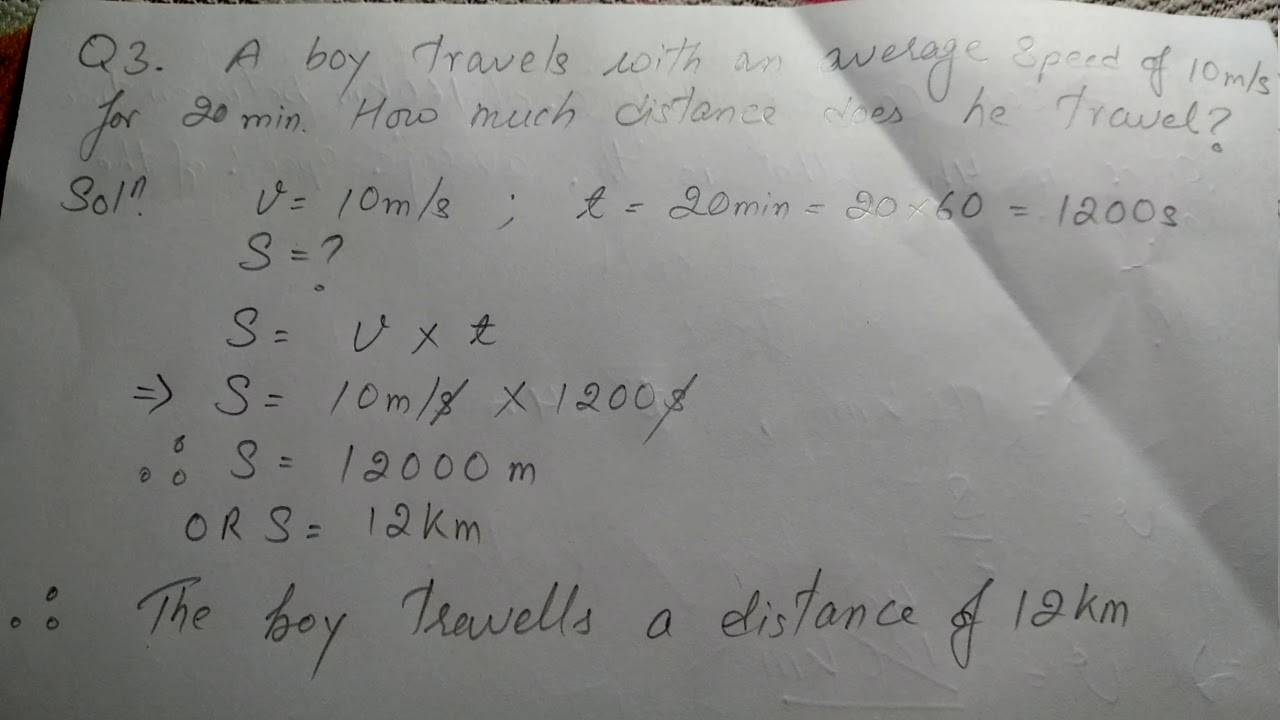 Q3. A boy travels with an average speed of 10m/s
for 20 min. How much distance does he travel?
Solⁿ. v = 10m/s ; t = 20min = 20 × 60 = 1200s
S = ?
S = v × t
⇒ S = 10m/s × 1200s
∴ S = 12000 m
OR S = 12km
∴ The boy travells a distance of 12km